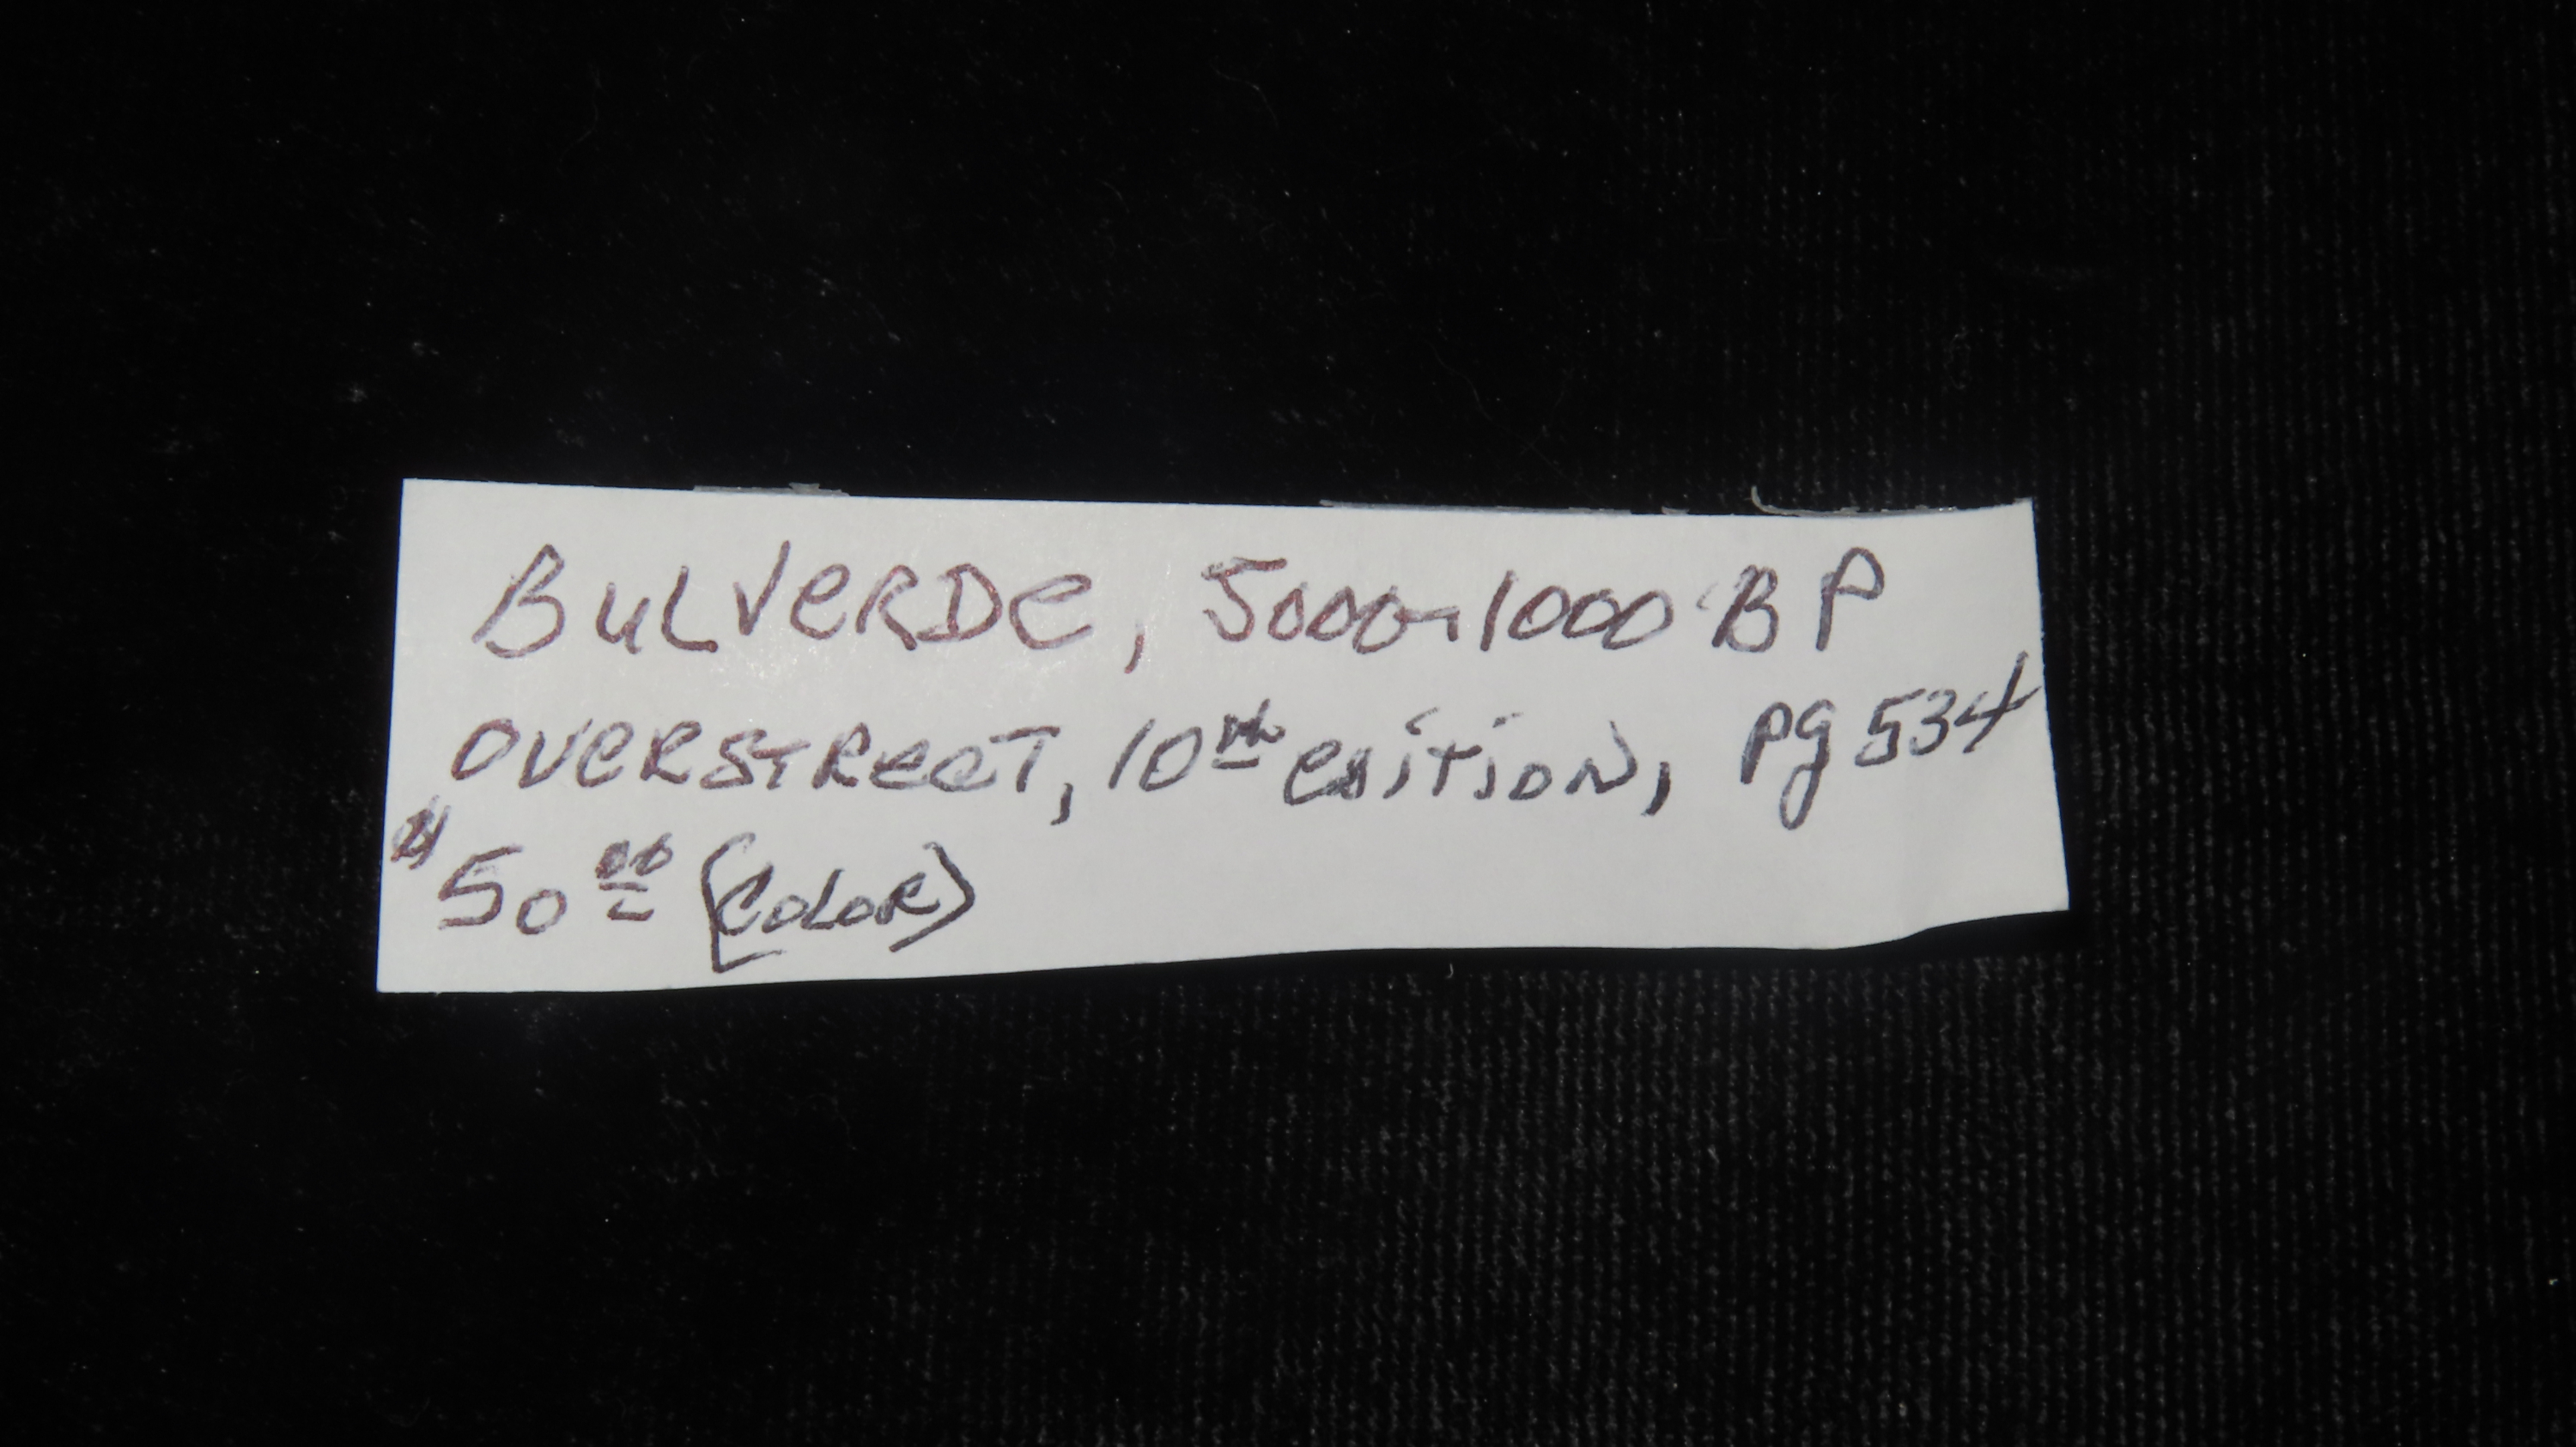 BULVERDE, 5000-1000 BP
OVERSTREET, 10th EDITION, Pg 534
$50 00 (COLOR)